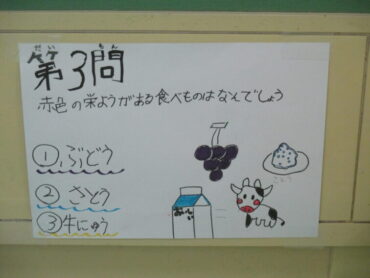 第3問
赤色の栄ようがある食べものはなんでしょう
①ぶどう
②さとう
③牛にゅう
さとう